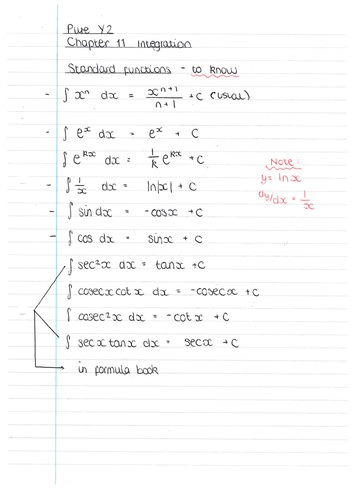 Pure Y2
Chapter 11 Integration
Standard functions - to know
- ∫ xⁿ dx = xⁿ⁺¹/n+1 + c (usual)
- ∫ eˣ dx = eˣ + c
∫ eᵏˣ dx = 1/k eᵏˣ + c
- ∫ 1/x dx = ln|x| + c
- ∫ sin dx = -cosx + c
- ∫ cos dx = sinx + c
∫ sec²x dx = tanx + c
∫ cosecx cotx dx = -cosecx + c
∫ cosec²x dx = -cotx + c
∫ secx tanx dx = secx + c
in formula book
Note:
y = lnx
dy/dx = 1/x